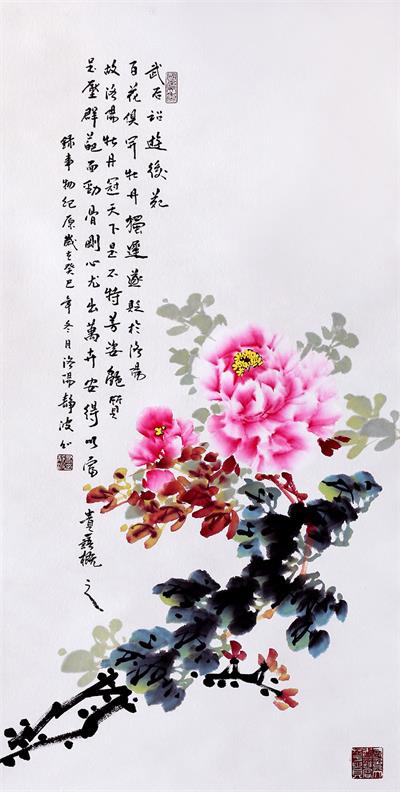 武后詔遊後苑
百花俱開牡丹獨遲遂貶於洛陽
故洛陽牡丹冠天下是不特芳姿艷質
足壓群葩而勁骨剛心尤出萬卉安得以富貴一概之
錄事物紀原歲在癸巳年冬月洛陽靜波